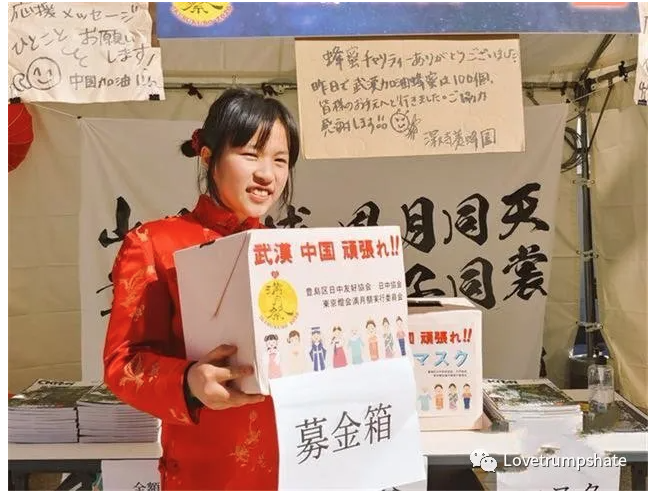 応援メッセージ
ひとこと お願い
します!
中国加油!!
蜂蜜チャリティーありがとうございました
昨日で武漢加油蜂蜜は100個、
皆様のお手元へと行きました。ご協力
感謝します!!
深大寺養蜂園
同天
月同
裳
武漢 中国 頑張れ!!
満月祭
豊島区日中友好協会 日中協会
東京燈会満月祭実行委員会
募金箱
頑張れ!!
マスク
金額
スク
Lovetrumpshate